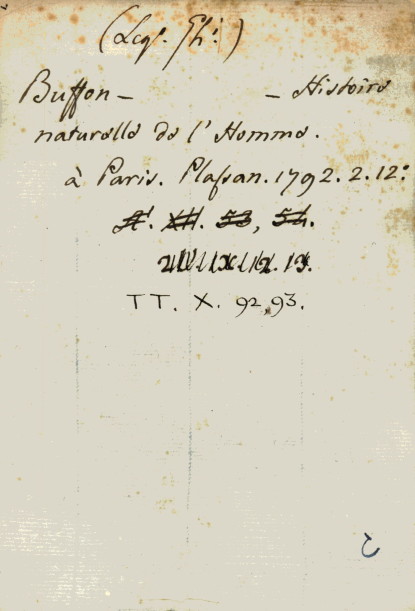 Buffon – – Histoire
naturelle de l'Homme.
à Paris. Plaſsan. 1792. 2. 12:
XII. 53, 54.
TT. X. 92, 93.